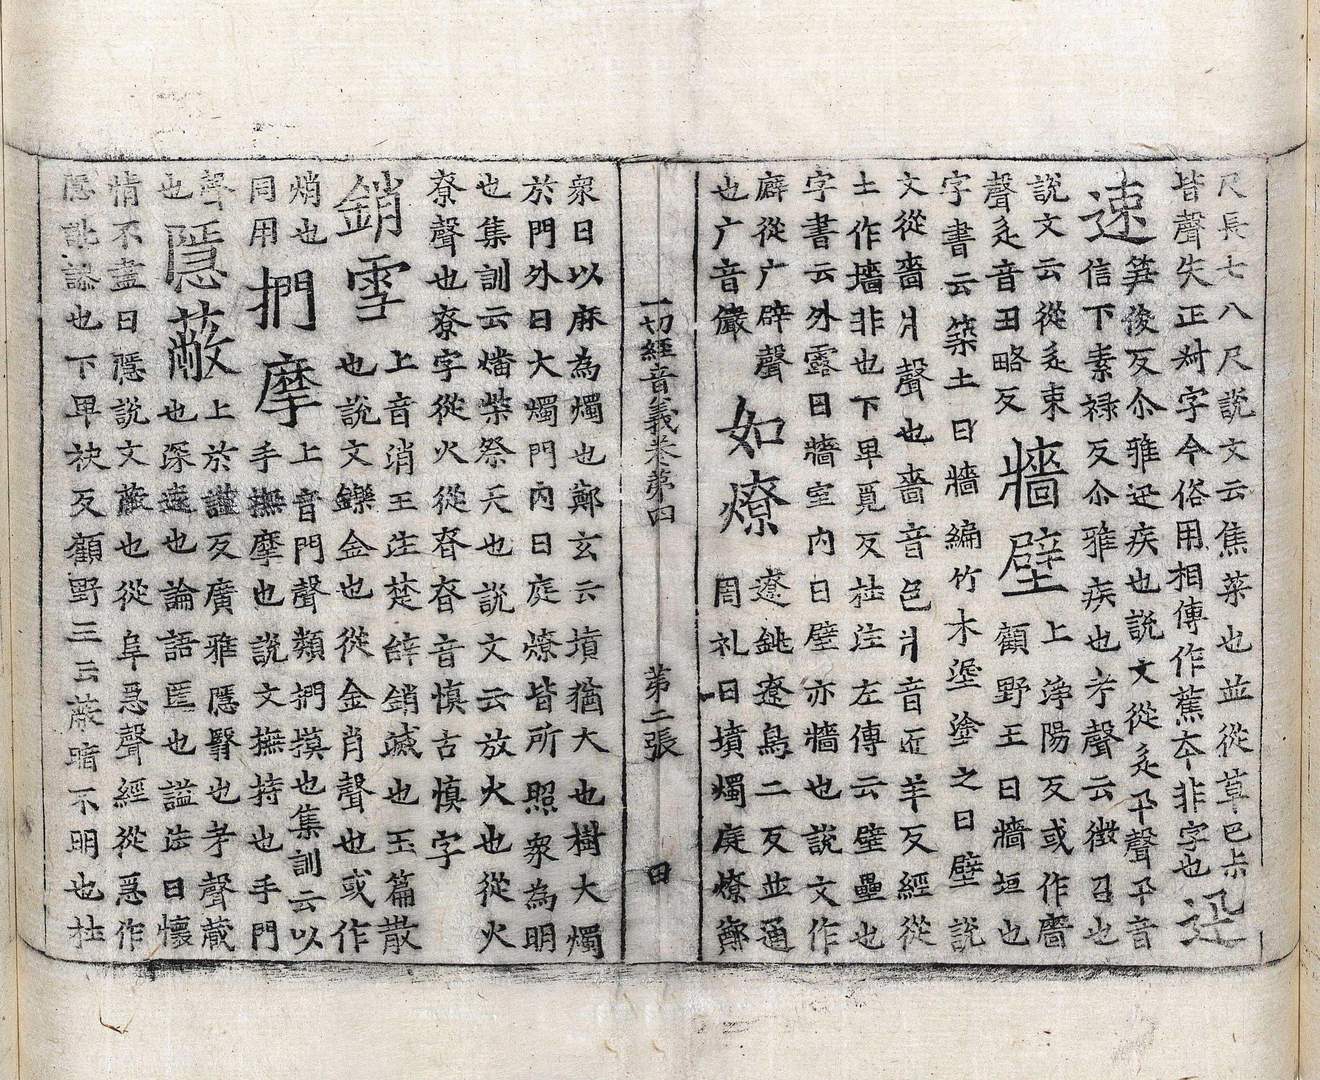 尺長七八尺說文云焦菜也並從草巴卡
皆聲失正躰字今俗用相傳作蕉夲非字也
迅速
笋俊反尒雅迅疾也說文從辵卂聲卂音
信下素祿反尒雅疾也考聲云徵召也
說文云從辵束
聲辵音丑略反
牆壁
上淨陽反或作廧
顧野王曰牆垣也
字書云築土曰牆編竹木埿塗之曰壁說
文從嗇爿聲也嗇音色爿音匠羊反經從
土作墻非也下卑覓反杜注左傳云壁壘也
字書云外露曰牆室內曰壁亦牆也說文作
廦從广辟聲
也广音儼
如燎
遼銚遼鳥二反並通
周礼曰墳燭庭燎鄭
一切經音義卷第四 第二張 田
衆曰以麻為燭也鄭玄云墳猶大也樹大燭
於門外曰大燭門內曰庭燎皆所照衆為明
也集訓云燔柴祭天也說文云放火也從火
尞聲也尞字從火從昚昚音慎古慎字
銷雪
上音消王注楚辭銷滅也玉篇散
也說文鑠金也從金肖聲也或作
焇也
同用
捫摩
上音門聲類捫摸也集訓云以
手撫摩也說文撫持也手門
聲
也
隱蔽
上於謹反廣雅隱翳也考聲藏
也深遠也論語匿也謚法曰懷
情不盡曰隱說文蔽也從阜㥯聲經從㥯作
隱訛謬也下卑袂反顧野王云蔽暗不明也杜